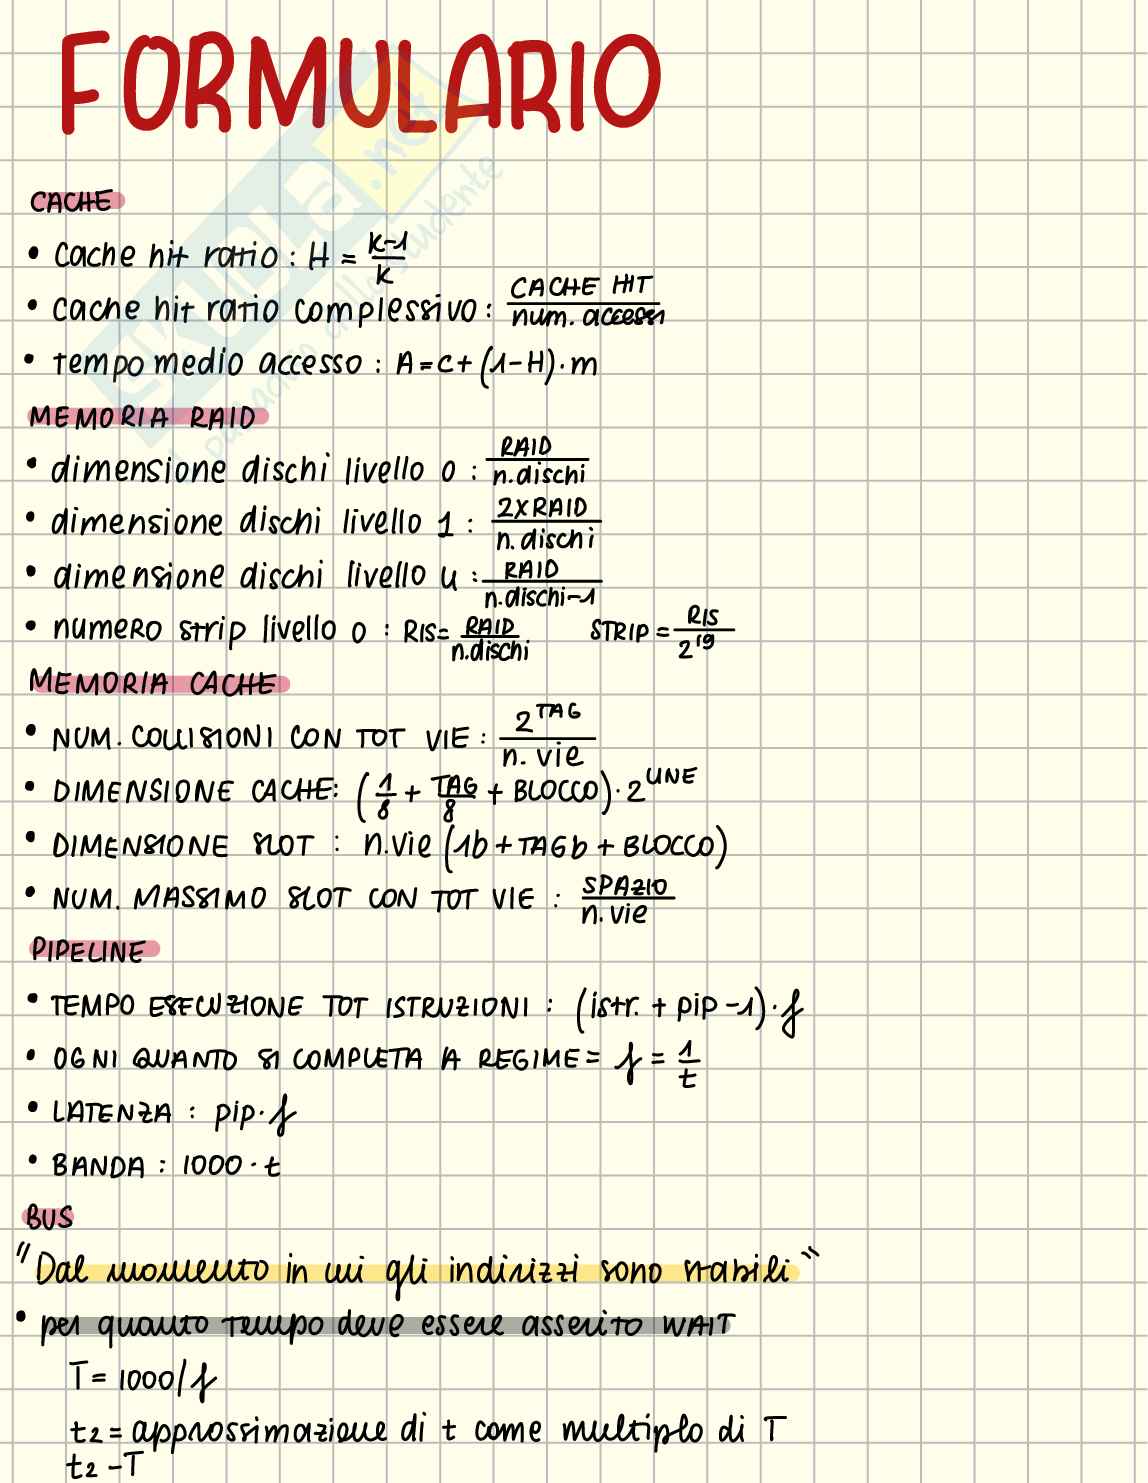 FORMULARIO
CACHE
• Cache hit ratio : H = K-1/K
• cache hit ratio complessivo : CACHE HIT/num. accessi
• tempo medio accesso : A = c + (1-H)·m
MEMORIA RAID
• dimensione dischi livello 0 : RAID/n.dischi
• dimensione dischi livello 1 : 2XRAID/n.dischi
• dimensione dischi livello 4 : RAID/n.dischi-1
• numero strip livello 0 : RIS= RAID/n.dischi STRIP = RIS/2^19
MEMORIA CACHE
• NUM. COLLISIONI CON TOT VIE : 2^TAG/n. vie
• DIMENSIONE CACHE: (1/8 + TAG/8 + BLOCCO)·2^LINE
• DIMENSIONE SLOT : n.vie (1b + TAGb + BLOCCO)
• NUM. MASSIMO SLOT CON TOT VIE : SPAZIO/n.vie
PIPELINE
• TEMPO ESECUZIONE TOT ISTRUZIONI : (istr. + pip -1)·f
• OGNI QUANTO SI COMPLETA A REGIME = f = 1/t
• LATENZA : pip·f
• BANDA : 1000·t
BUS
"Dal momento in cui gli indirizzi sono stabili"
• per quanto tempo deve essere asserito WAIT
T = 1000/f
t2 = approssimazione di t come multiplo di T
t2 - T
SKUOLA.net
dalla parte dello studente